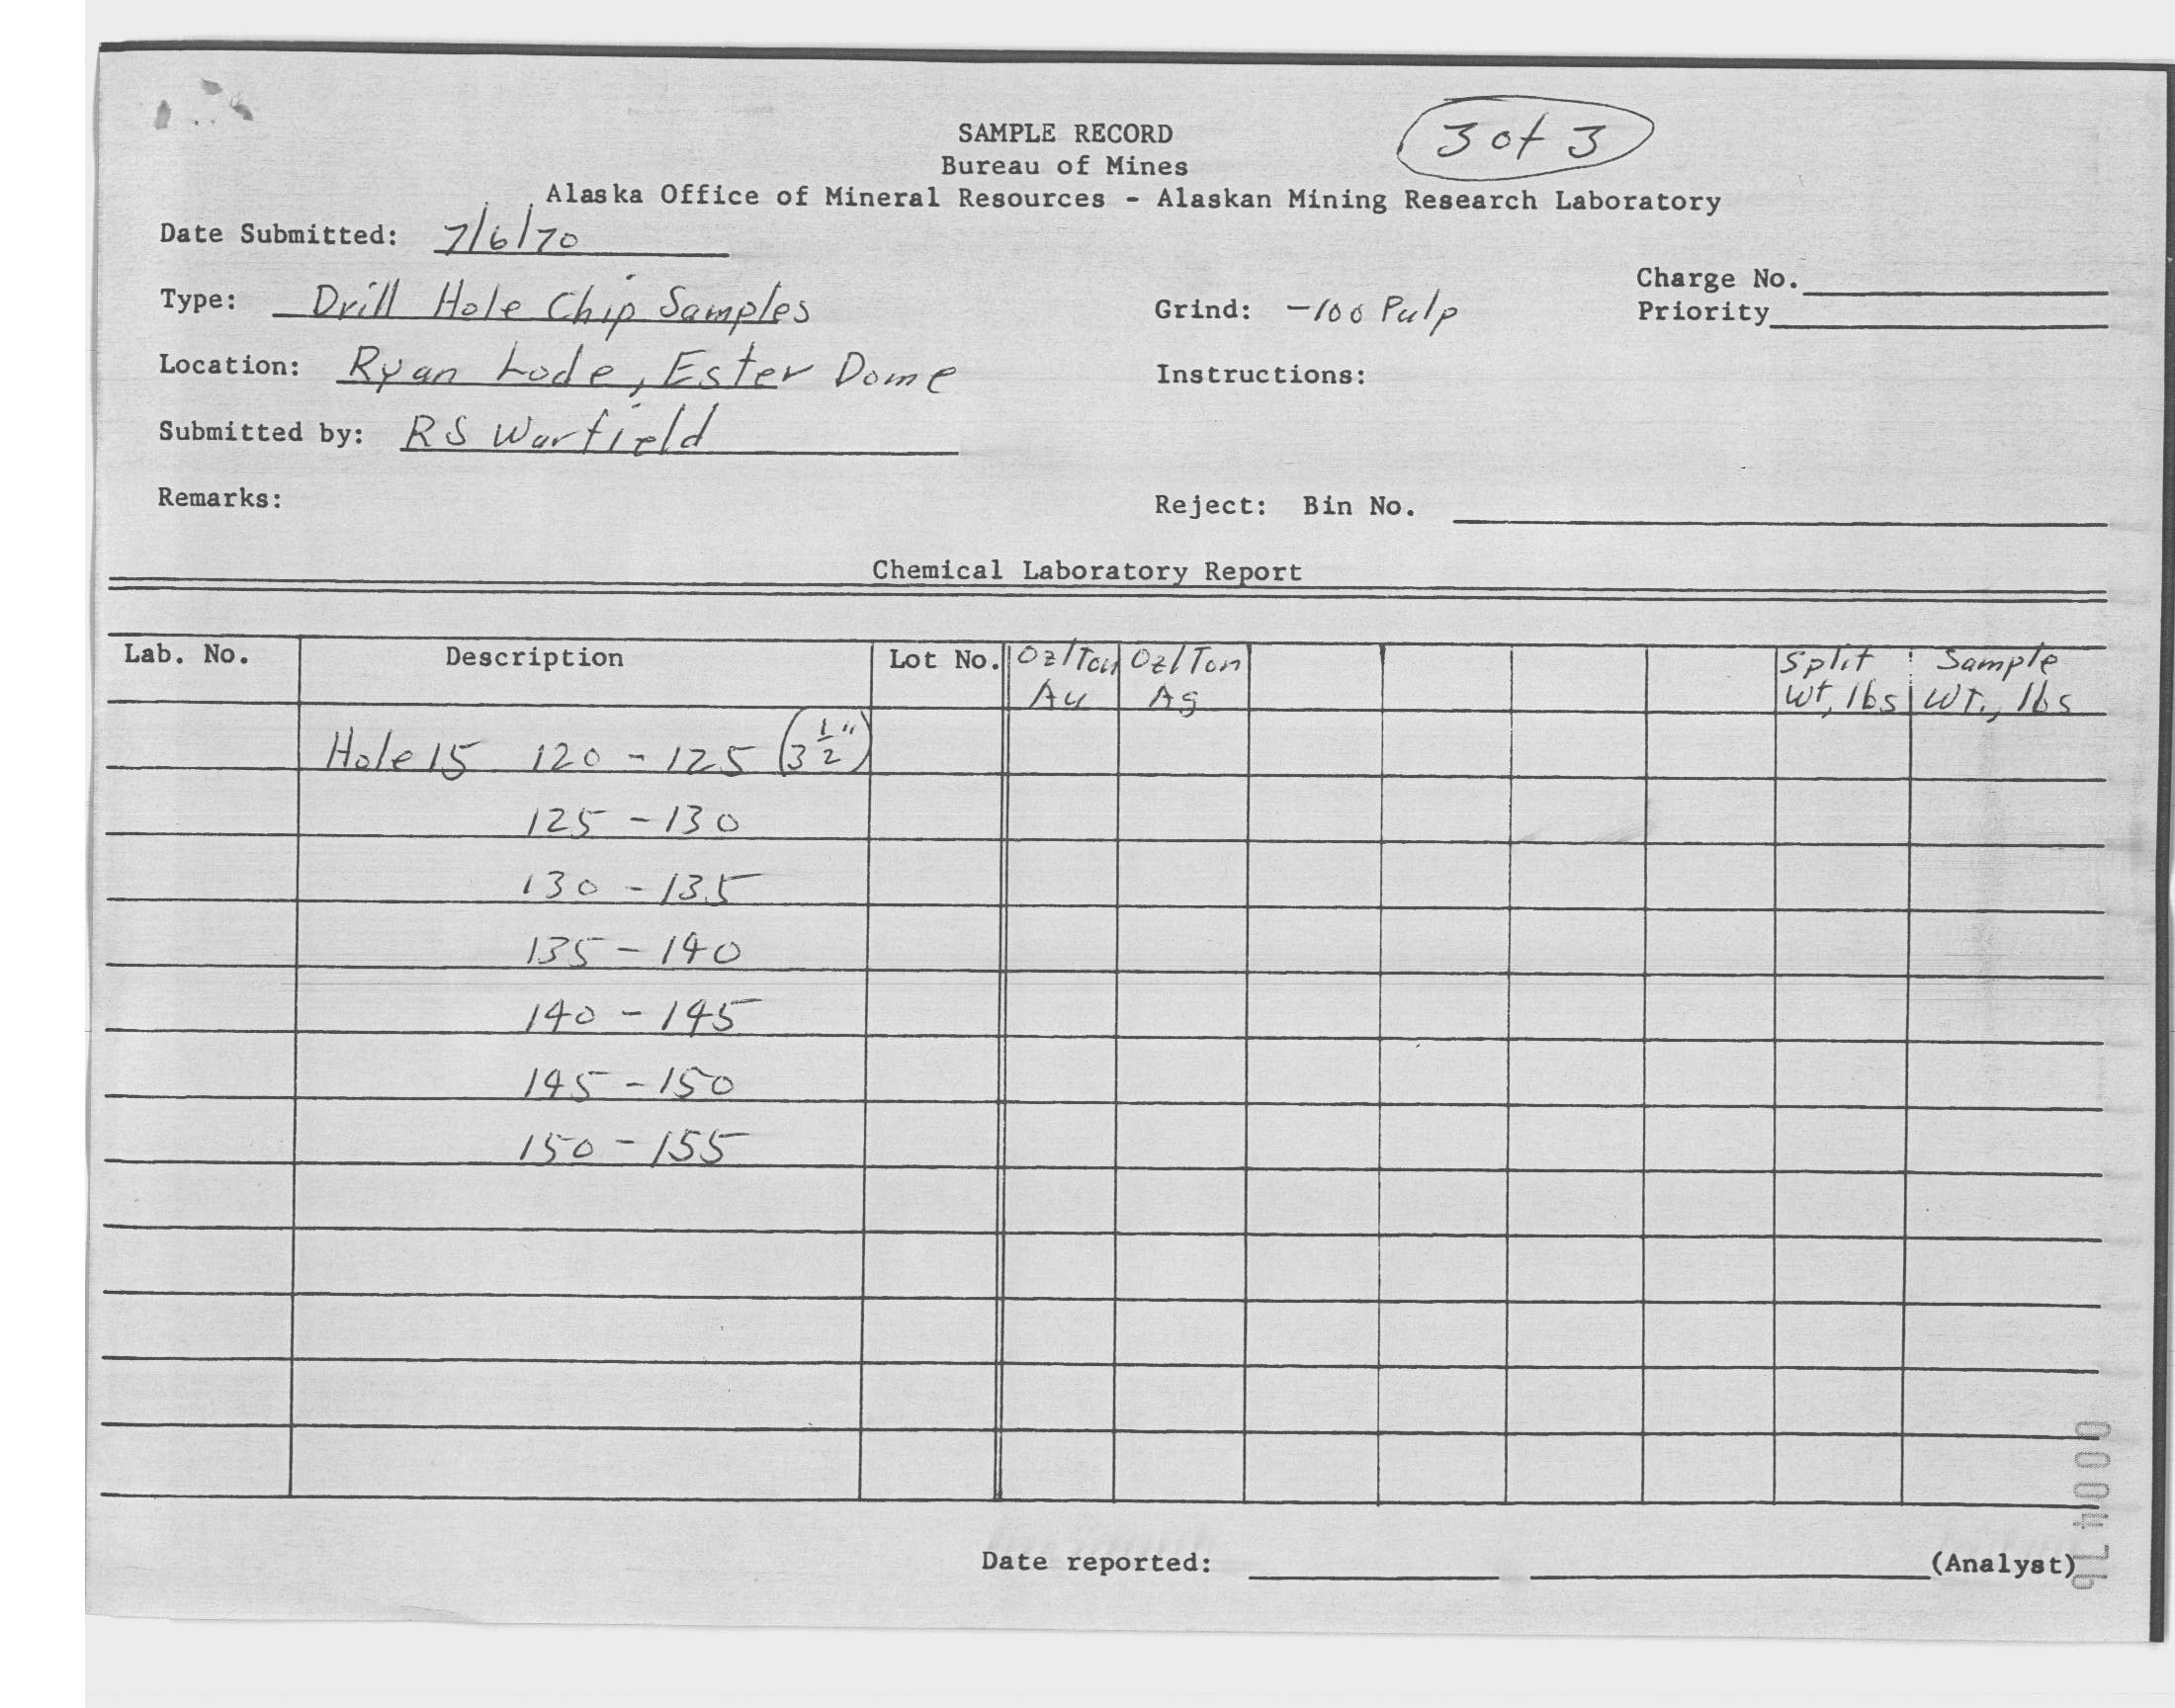 SAMPLE RECORD
3 of 3
Bureau of Mines
Alaska Office of Mineral Resources - Alaskan Mining Research Laboratory
Date Submitted: 7/6/70
Charge No.
Type: Drill Hole Chip Samples
Grind: -100 Pulp
Priority
Location: Ryan Lode, Ester Dome
Instructions:
Submitted by: RS Warfield
Remarks:
Reject: Bin No.
Chemical Laboratory Report
Lab. No. Description Lot No. Oz/Ton Au Oz/Ton Ag Split Wt, lbs Sample Wt., lbs
Hole 15 120 - 125 (3 1/2")
125 - 130
130 - 135
135 - 140
140 - 145
145 - 150
150 - 155
Date reported: (Analyst)
000476